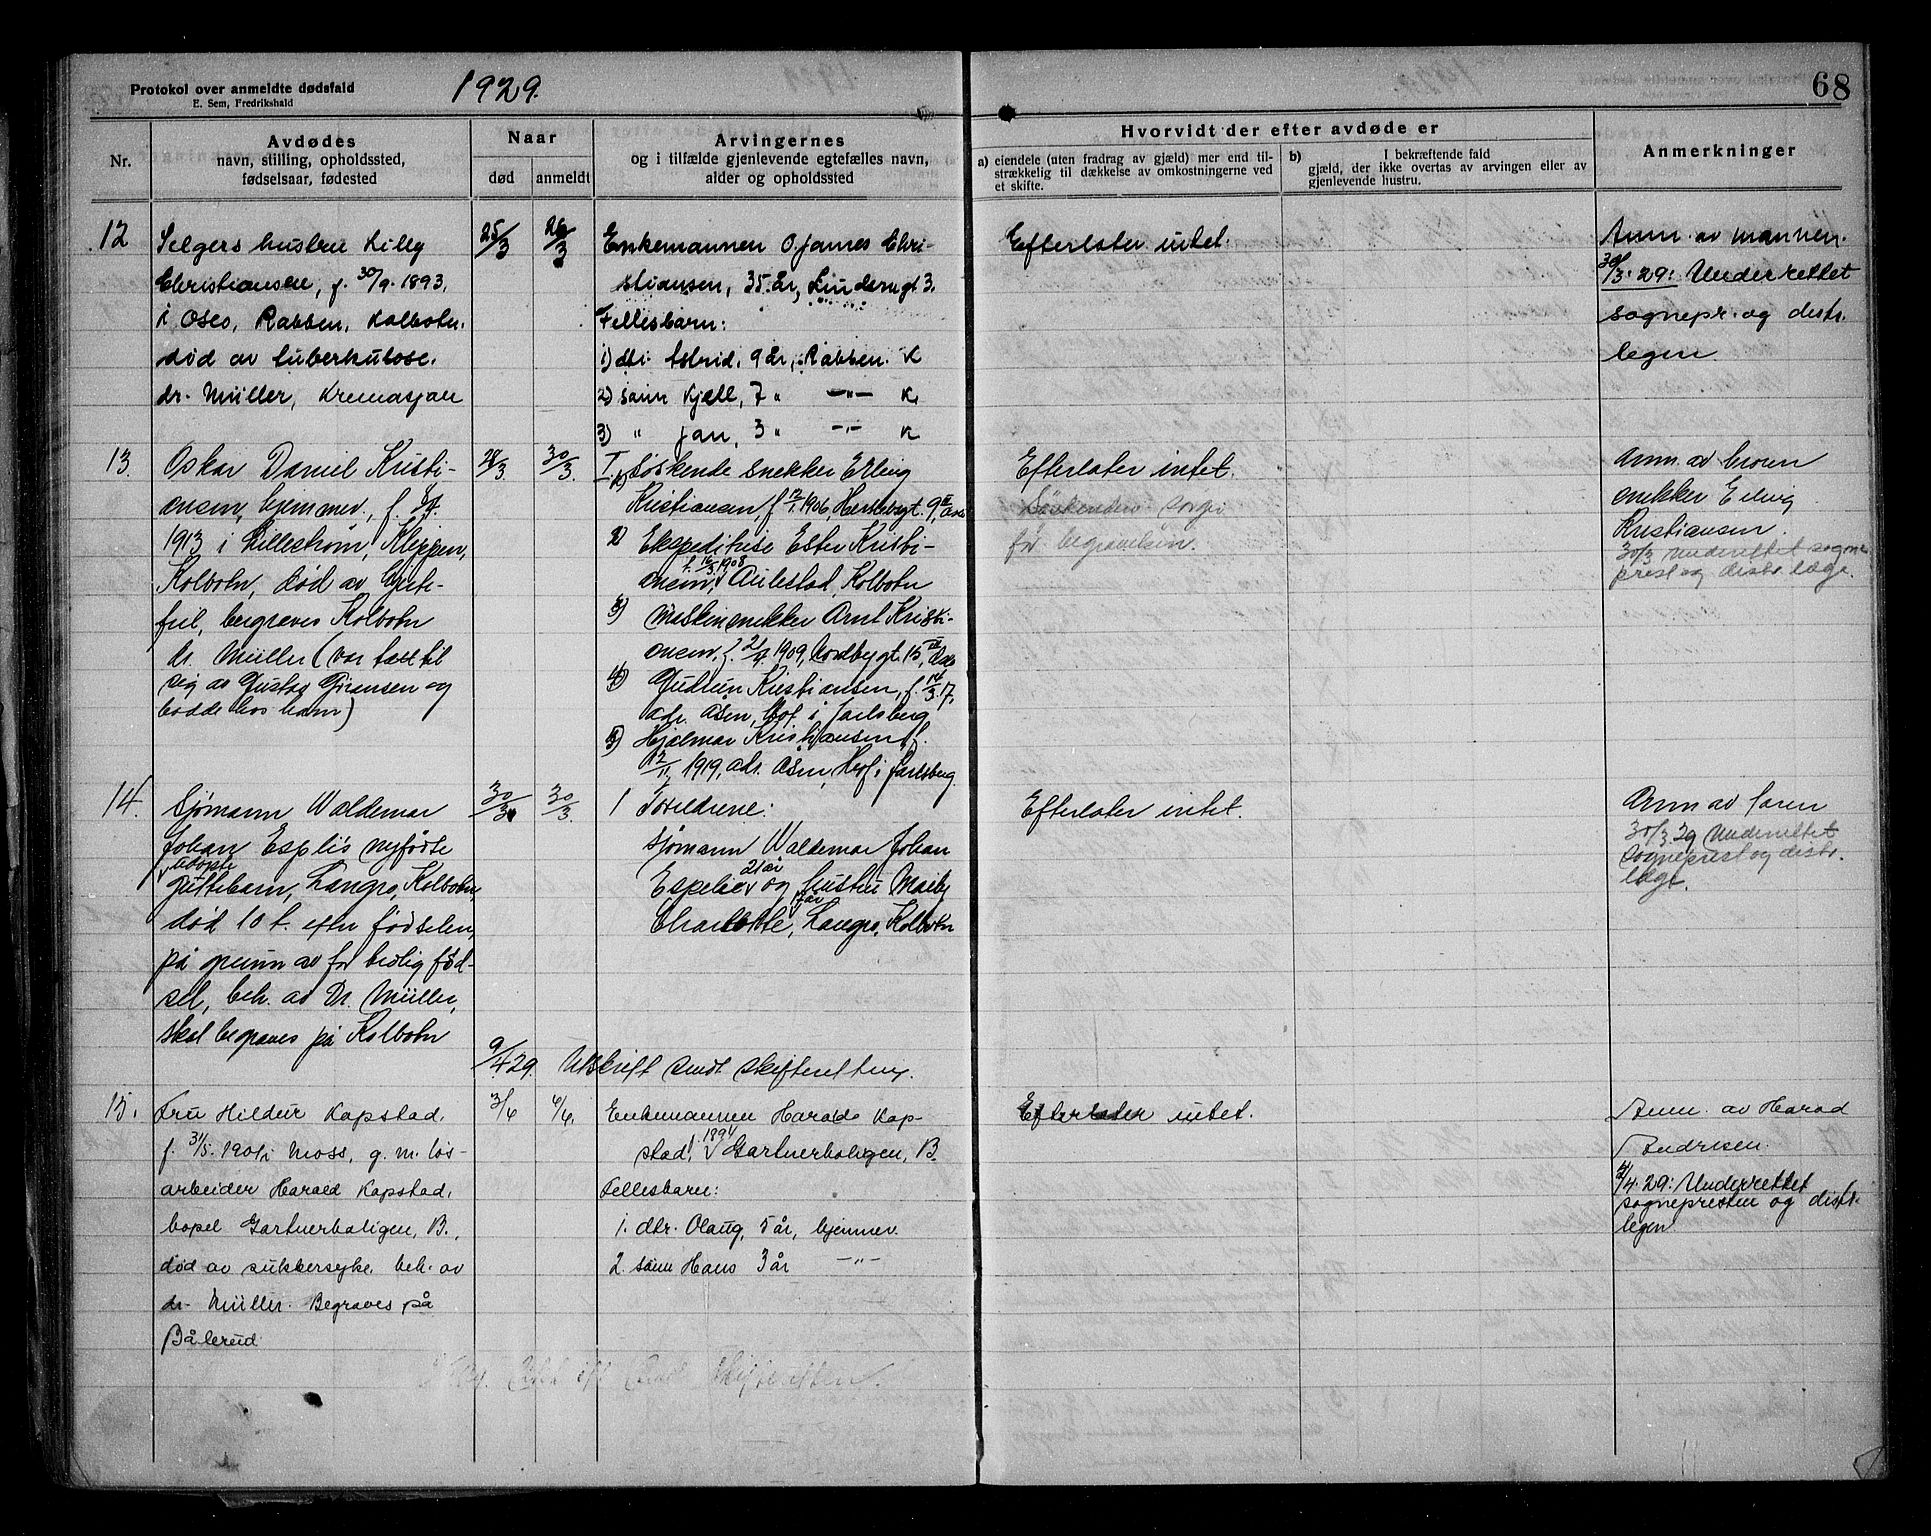 Protokol over anmeldte dødsfald
E. Sem, Fredrikshald
1929.
68
Nr.
Avdødes
navn, stilling, opholdssted,
fødselsaar, fødested
Naar
død
anmeldt
Arvingernes
og i tilfælde gjenlevende egtefælles navn,
alder og opholdssted
Hvorvidt der efter avdøde er
a) eiendele (uten fradrag av gjæld) mer end til-
strækkelig til dækkelse av omkostningerne ved
et skifte.
b) I bekræftende fald
gjæld, der ikke overtas av arvingen eller av
gjenlevende hustru.
Anmerkninger
12
Selgers hustru Lilly
Christiansen, f. 30/9. 1893,
i Oslo, Rabben, Kolbotn.
død av tuberkulose.
dr. Müller, Kremasjon
25/3
26/3
Enkemannen O. James Chri-
stiansen, 35 år, Linderugt 3.
Fellesbarn:
1) dtr Astrid, 9 år, Rabben. K
2) sønn Kjell, 7 " —"— K
3) " Jan, 3 " —"— K
Efterlater intet.
Anm. av mannen.
30/3. 29: Underrettet
sognepr. og distr.
legen
13.
Oskar Daniel Kristi-
ansen, hjemmev., f.
1913 i Lillestrøm, Kleppen,
Kolbotn, død av hjerte-
feil, begraves Kolbotn
dr. Müller (var tatt til
sig av Gustav Gransen og
bodde hos ham)
28/3.
30/3.
I. 1) Søskende snekker Erling
Kristiansen, f 12/1 1906, 9, III
2) Ekspeditrise Ester Kristi-
ansen, f. 16/3 1908 Aulestad, Kolbotn
3) Maskinsnekker Arnt Kristi-
ansen, f. 2/4 1909, Nordbygt. 15
4) Gudrun Kristiansen, f. 14/3.17,
adr. Åsen, Hof i Jarlsberg
5) Hjalmar Kristiansen f.
12/11 1919, adr. Åsen, Hof i Jarlsberg
Efterlater intet.
Søskenden sørger
for begravelsen.
Anm. av broren
snekker Erling
Kristiansen.
30/3 underrettet sogne-
prest og distr. læge.
14.
Sjømann Waldemar
Johan Esplis nyfødte
guttebarn, Langro, Kolbotn,
død 10 t. efter fødselen,
på grunn av for tidlig fød-
sel, beh. av Dr. Müller,
skal begraves på Kolbotn
30/3
30/3.
1 Foreldrene:
sjømann Waldemar Johan
Espelie 21 år og hustru Maiby
Charlotte, Langro, Kolbotn
Efterlater intet.
Anm av faren
30/3 29 Underrettet
sogneprest og distr.
læge.
9/4 29. Utskrift sendt skifteretten.
15.
Fru Hildur Kopstad,
f. 31/5. 1901 i Moss, g. m. løs-
arbeider Harald Kopstad,
bopel Gartnerboligen, B.,
død av sukkersyke beh. av
dr. Müller. Begraves på
Bålerud
3/4
4/4.
Enkemannen Harald Kop-
stad, f. 1894 Gartnerboligen, B.
Fellesbarn:
1. dtr. Olaug, 5 år, hjemmev.
2. sønn Hans 3 år —"—
Efterlater intet.
Anm. av Harad
Andresen.
4/4. 29: Underrettet
sognepresten og distr.
legen